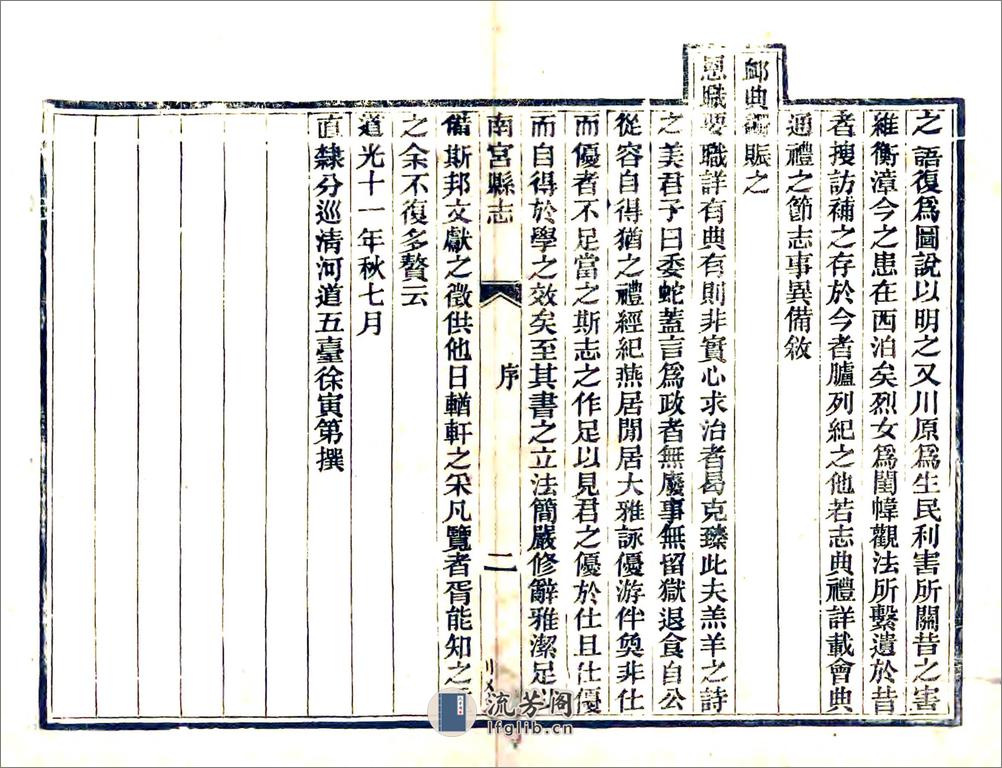 之語復爲圖說以明之又川原爲生民利害所關昔之害
維衡漳今之患在西泊矣烈女爲閨幃觀法所繫遺於昔
者搜訪補之存於今者臚列紀之他若志典禮詳載會典
通禮之節志事異備敘
卹典蠲賑之
恩職要職詳有典有則非實心求治者曷克臻此夫羔羊之詩
之美君子曰委蛇蓋言爲政者無廢事無留獄退食自公
從容自得猶之禮經紀燕居閒居大雅詠優游伴奐非仕
而優者不足當之斯志之作足以見君之優於仕且仕優
而自得於學之效矣至其書之立法簡嚴修辭雅潔足以
南宮縣志
序
二
備斯邦文獻之徵供他日輶軒之采凡覽者胥能知之
之余不復多贅云
道光十一年秋七月
直隸分巡清河道五臺徐寅第撰
流芳阁
lfglib.cn